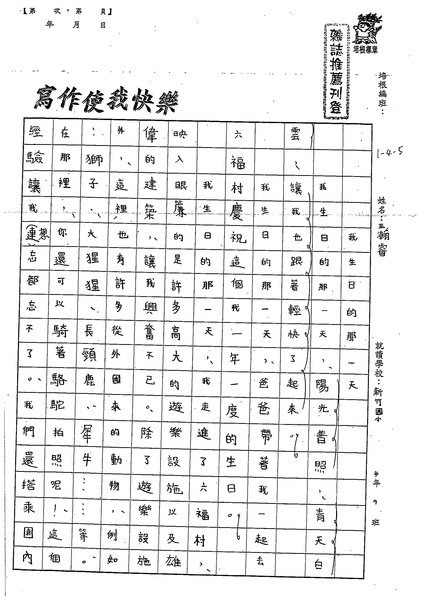 【第　次，第　頁】
年　月　日
培根標章
雜誌推薦刊登
培根編班：
1-4-5
就讀學校：新竹國小
4年9班
寫作使我快樂
我的生日的那一天
陽光普照，青天白
雲，讓我也跟著輕快了起來。
我生日的那一天，爸爸帶著我一起去
六福村慶祝這個一年一度的生日。
我生日的那一天，我走進了六福村，
映入眼簾的是許多高大的遊樂設施以及雄
偉的建築，讓我興奮不已。除了遊樂設施
外，這裡也有許多從外國來的動物，例如
：獅子、大猩猩、長頸鹿、犀牛……等等。
在那裡，你還可以騎著駱駝拍照呢！這個
經驗讓我連想忘都忘不了。我們還搭乘園內